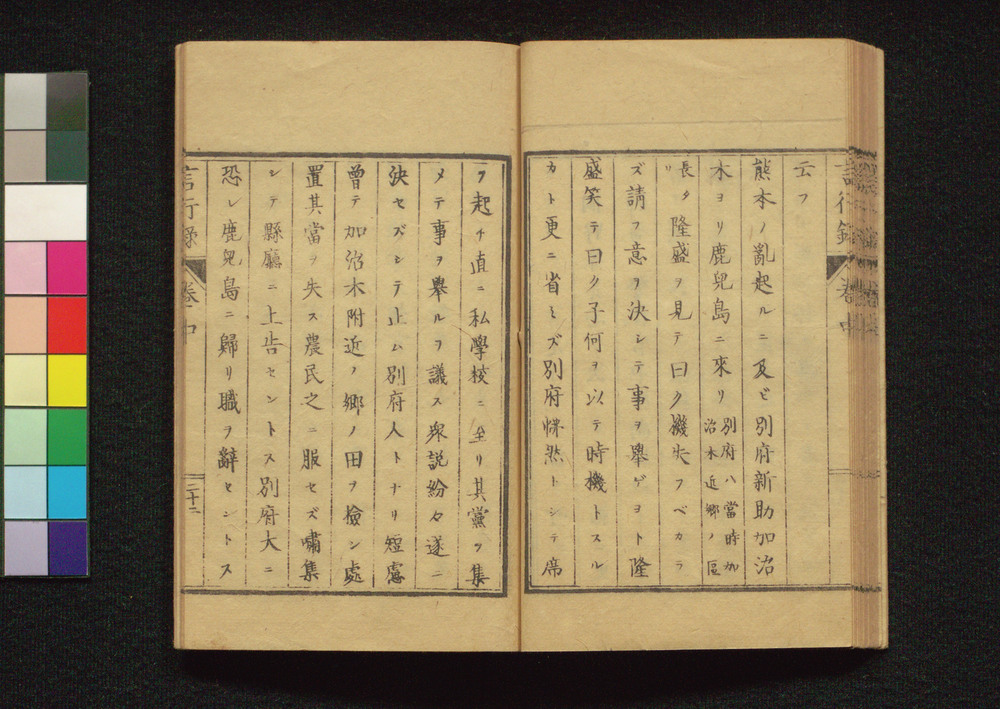 云フ
熊本ノ亂起ルニ及ビ別府新助加治
木ヨリ鹿兒島ニ來リ別府ハ當時加治木近郷ノ區
長タリ隆盛ヲ見テ曰ク機失フベカラ
ズ請フ意ヲ決シテ事ヲ擧ゲヨト隆
盛笑テ曰ク子何ヲ以テ時機トスル
カト更ニ省ミズ別府怫然トシテ席
ヲ起チ直ニ私學校ニ至リ其黨ヲ集
メテ事ヲ擧ルヲ議ス衆説紛々遂ニ
決セズシテ止ム別府人トナリ短慮
曾テ加治木附近ノ郷ノ田ヲ檢シ處
置其當ヲ失ス農民之ニ服セズ嘯集
シテ縣廳ニ上告セントス別府大ニ
恐レ鹿兒島ニ歸リ職ヲ辭セントス
言行録 卷中 二十二